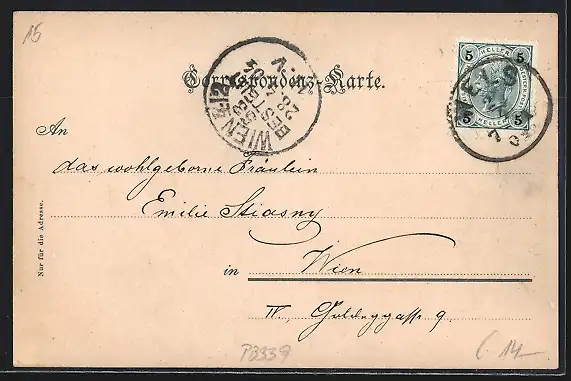 15
Correspondenz-Karte.
5 5
HELLER
5 5
WELS
WIEN 4/2
An
das wohlgeborne Fräulein
Emilie Stiasny
in Wien
IV, Goldeggasse 9.
Nur für die Adresse.
P3339
14